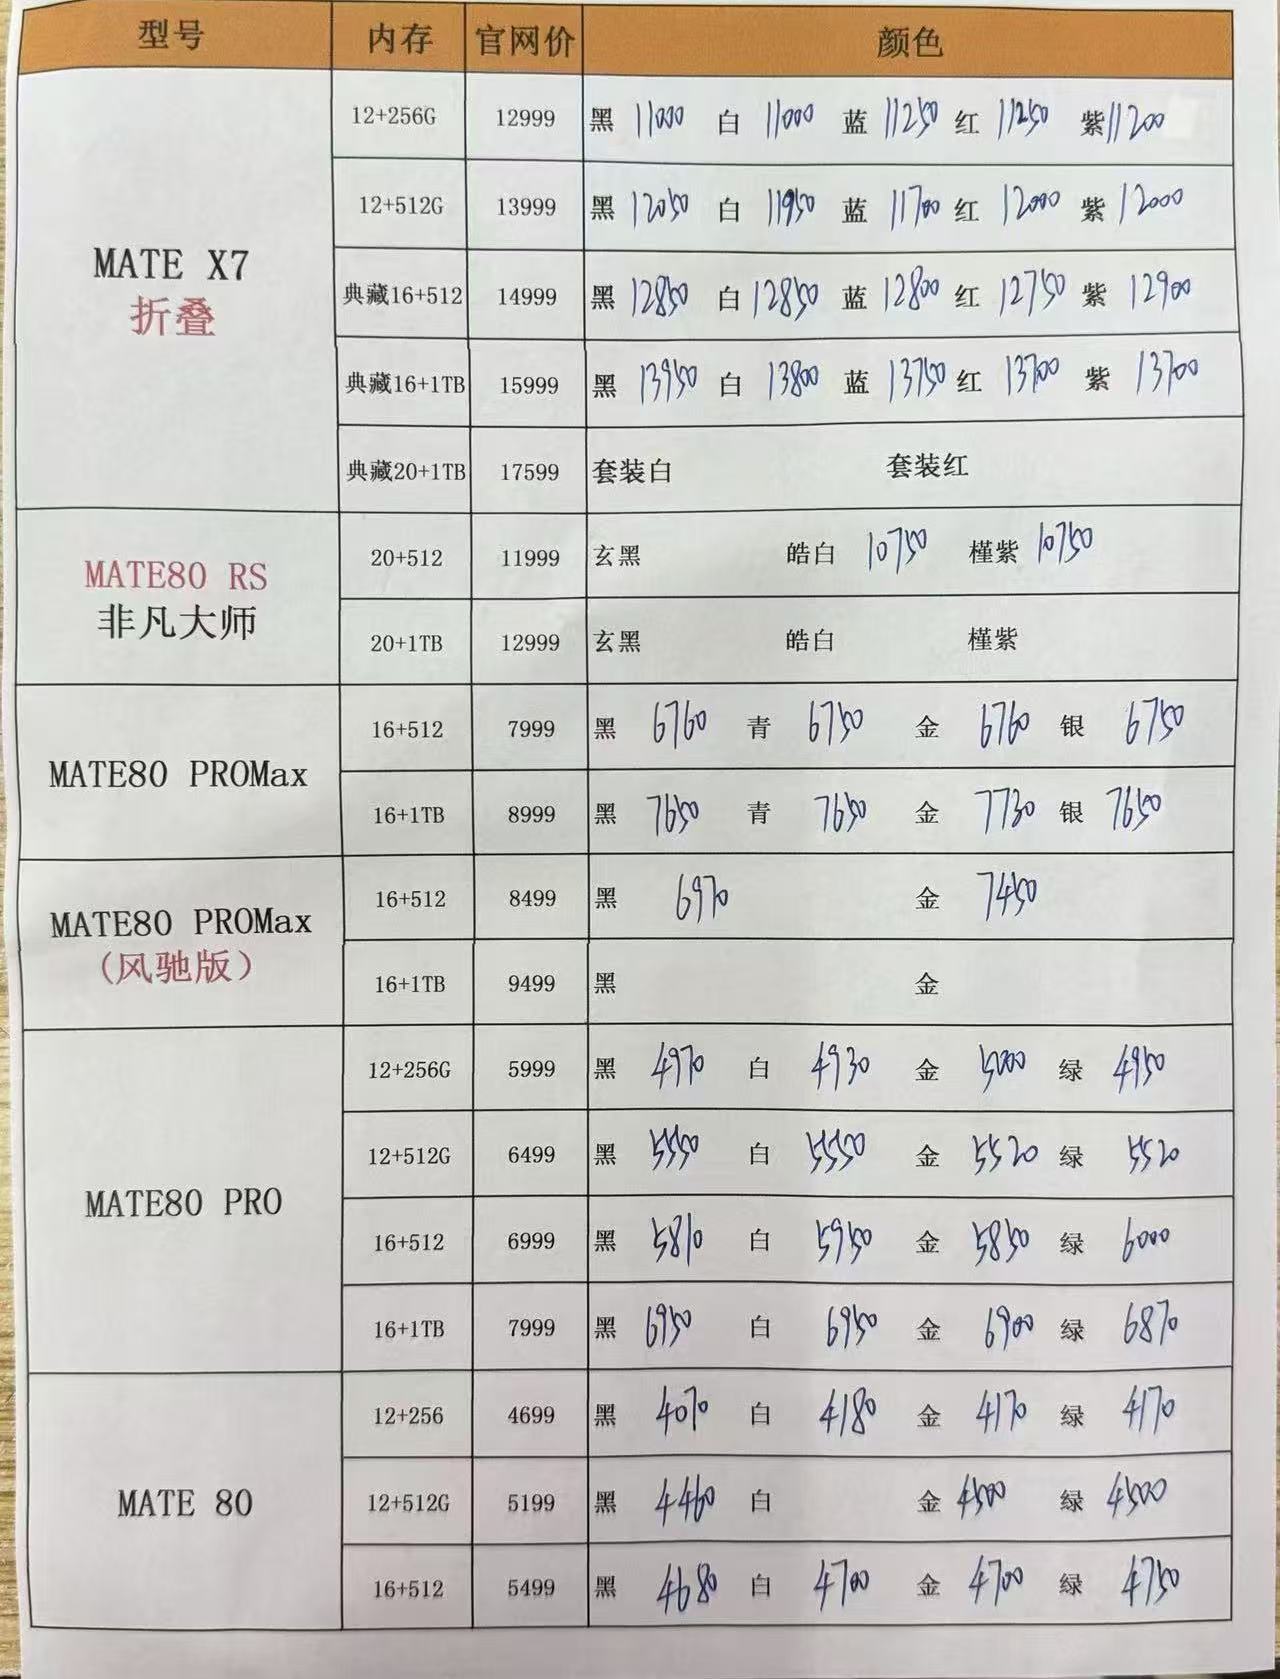 型号 内存 官网价 颜色
12+256G 12999 黑 11000 白 11000 蓝 11250 红 11250 紫 11200
12+512G 13999 黑 12050 白 11950 蓝 11700 红 12000 紫 12000
MATE X7
折叠
典藏16+512 14999 黑 12850 白 12850 蓝 12800 红 12750 紫 12900
典藏16+1TB 15999 黑 13950 白 13800 蓝 13750 红 13700 紫 13700
典藏20+1TB 17599 套装白 套装红
MATE80 RS
非凡大师
20+512 11999 玄黑 皓白 10750 槿紫 10750
20+1TB 12999 玄黑 皓白 槿紫
MATE80 PROMax
16+512 7999 黑 6760 青 6750 金 6760 银 6750
16+1TB 8999 黑 7650 青 7650 金 7730 银 7650
MATE80 PROMax
(风驰版)
16+512 8499 黑 6970 金 7450
16+1TB 9499 黑 金
MATE80 PRO
12+256G 5999 黑 4970 白 4930 金 5000 绿 4950
12+512G 6499 黑 5550 白 5550 金 5520 绿 5520
16+512 6999 黑 5810 白 5950 金 5850 绿 6000
16+1TB 7999 黑 6950 白 6950 金 6900 绿 6870
MATE 80
12+256 4699 黑 4070 白 4180 金 4170 绿 4170
12+512G 5199 黑 4460 白 金 4500 绿 4500
16+512 5499 黑 4680 白 4700 金 4700 绿 4750